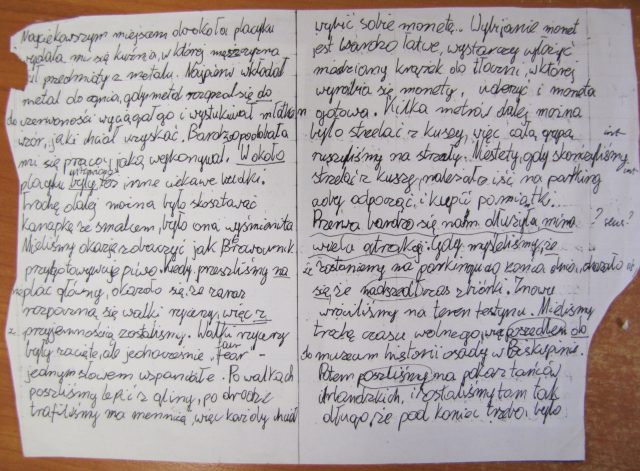 Najciekawszym miejscem dookoła placyku
wydała mi się kuźnia, w której mężczyzna
przedmioty z metalu. Najpierw wkładał
metal do ognia, gdy metal rozpalał się do
do czerwoności wyciągał go i wystukiwał młotkiem
wzór, jaki chciał uzyskać. Bardzo podobała
mi się praca jaką wykonywał. Wokoło
placyku były też inne ciekawe budki.
Trochę dalej można było skosztować
kanapkę ze smalcem, było ona wyśmienita
Mieliśmy okazję zobaczyć jak Browarnik
przygotowywuje piwo. Kiedy przeszliśmy na
plac główny, okazało się, że zaraz
rozpoczną się walki rycerzy, więc z
z przyjemnością zostaliśmy. Walki rycerzy
fair
były zacięte, ale jednocześnie "fear" -
jednym słowem wspaniałe. Po walkach
poszliśmy lepić z gliny, po drodze
trafiliśmy na mennicę, więc każdy chciał
wybić sobie monetę.. Wybijanie monet
jest bardzo łatwe, wystarczy włożyć
miedziany krążek do tłoczni, w której
wyrobia się monety, uderzyć i moneta
gotowa. Kilka metrów dalej można
było strzelać z kuszy, więc cała grupa
ruszyliśmy na strzały. Niestety, gdy skończyliśmy
strzelać z kuszy, należało iść na parking
żeby odpocząć, i kupić pamiątki.
Przerwa bardzo się nam dłużyła, mimo
wielu atrakcji. Gdy myśleliśmy, że
że zostaniemy na parkingu do końca dnia, okazało
się, że nadszedł czas zbiórki. Znowu
wróciliśmy na teren festynu. Mieliśmy
trochę czasu wolnego, więc poszedłem do
do muzeum historii osady w Biskupinie.
Potem poszliśmy na pokaz tańców
irlandzkich, i zostaliśmy tam tak
długo, że pod koniec trzeba było